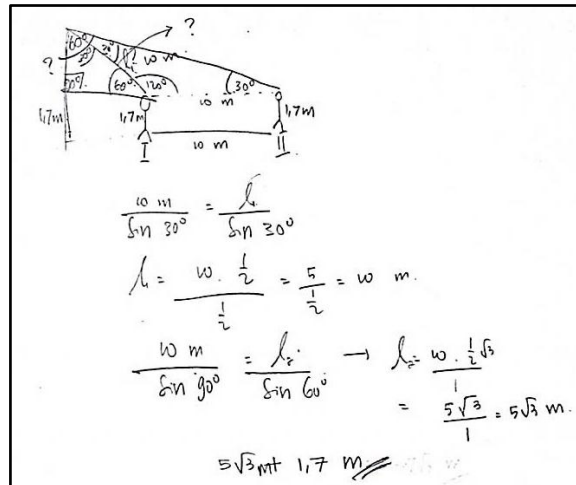 60°
?
?
30°
l₁ = 10 m
90°
60°
120°
30°
10 m
1,7 m
1,7 m
1,7 m
10 m
I
II
10 m / sin 30° = l₁ / sin 30°
l₁ = 10 . 1/2 / 1/2 = 5 / 1/2 = 10 m.
10 m / sin 90° = l₂ / sin 60° → l₂ = 10 . 1/2 √3 / 1
= 5√3 / 1 = 5√3 m.
5√3 m + 1,7 m